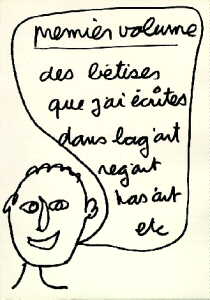 premier volume
des bêtises
que j'ai écrites
dans l'ag'art
reg'art
has'art
etc